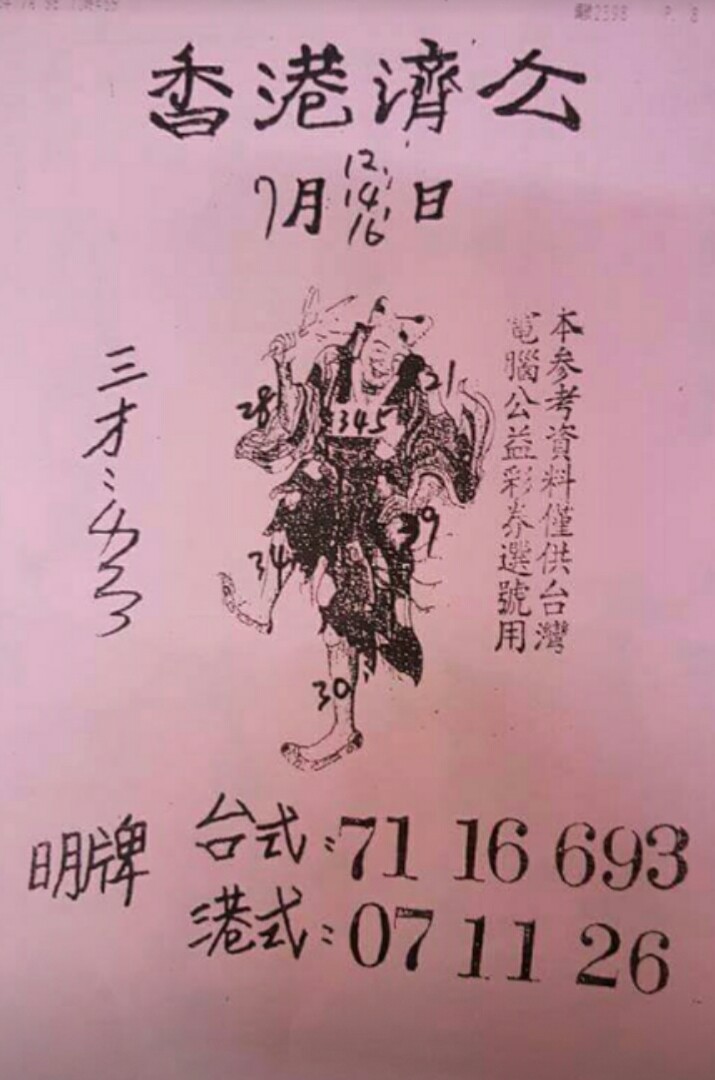 香港濟公
7月12, 14, 16日
本參考資料僅供台灣
電腦公益彩券選號用
三才:
28
21
345
39
34
30
明牌
台式:71 16 693
港式:07 11 26